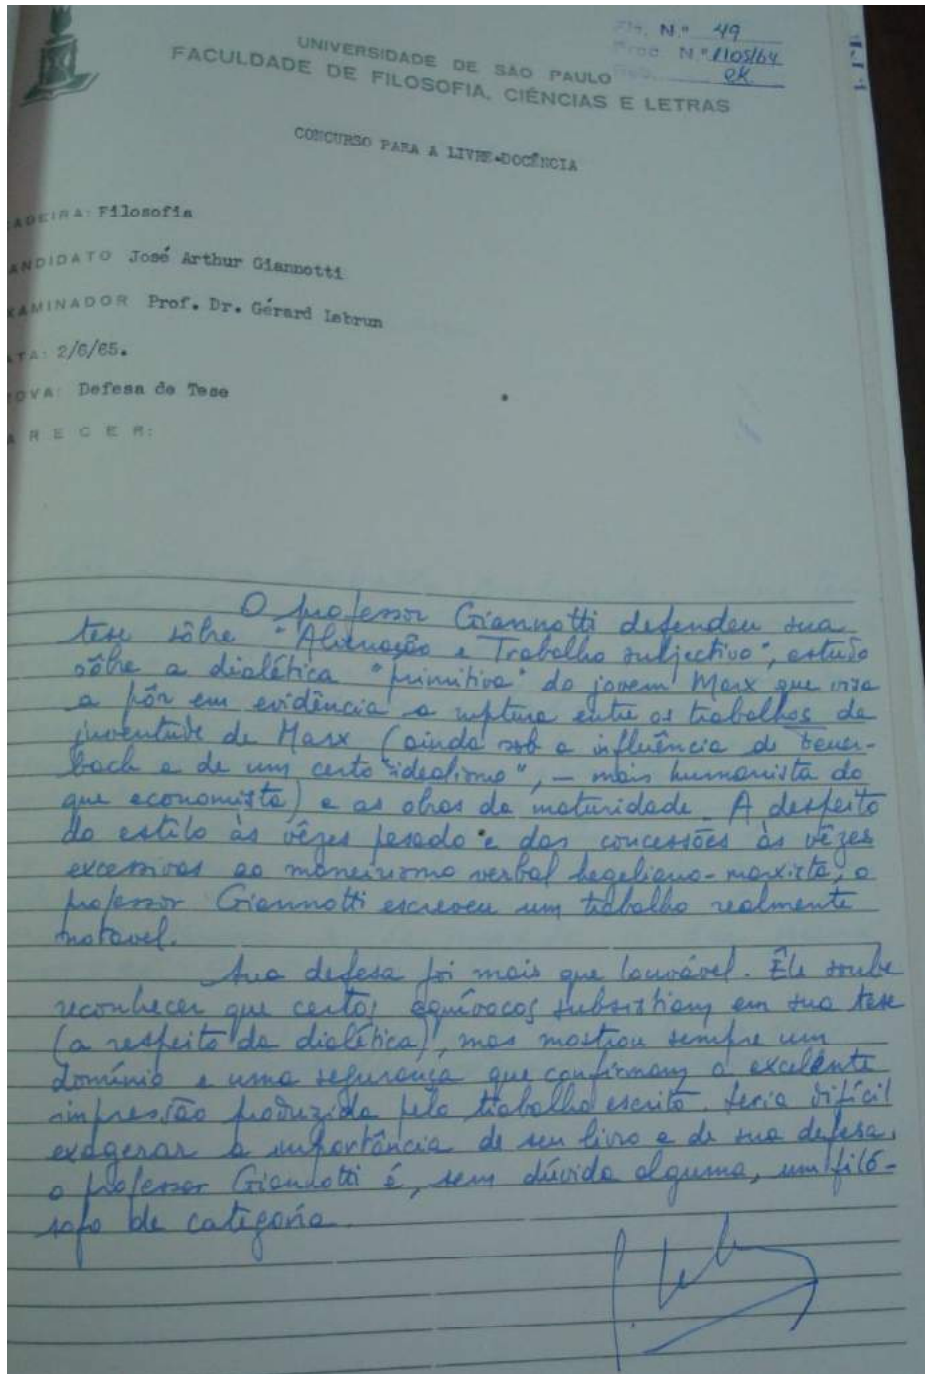 Fls. N.º 49
Proc. N.º 1105/64
UNIVERSIDADE DE SÃO PAULO
FACULDADE DE FILOSOFIA, CIÊNCIAS E LETRAS
CONCURSO PARA A LIVRE-DOCÊNCIA
ADEIRA: Filosofia
ANDIDATO José Arthur Giannotti
XAMINADOR Prof. Dr. Gérard Lebrun
ATA: 2/6/65.
OVA: Defesa de Tese
A R E C E R:
O professor Giannotti defendeu sua
tese sôbre "Alienação e Trabalho subjectivo", estudo
sôbre a dialética "primitiva" do jovem Marx que visa
a pôr em evidência a ruptura entre os trabalhos da
juventude de Marx (ainda sob a influência de Feuer-
bach e de um certo "idealismo", – mais humanista do
que economista) e as obras da maturidade. A despeito
do estilo às vêzes pesado e das concessões às vêzes
excessivas ao maneirismo verbal hegeliano-marxista, o
professor Giannotti escreveu um trabalho realmente
notavel.
Sua defesa foi mais que louvável. Êle soube
reconhecer que certos equívocos subsistiam em sua tese
(a respeito da dialética), mas mostrou sempre um
domínio e uma segurança que confirmam a excelente
impressão produzida pelo trabalho escrito. Seria difícil
exagerar a importância de seu livro e de sua defesa.
o professor Giannotti é, sem dúvida alguma, um filó-
sofo de categoria.